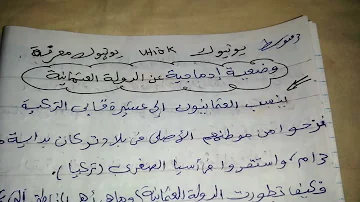 3 متوسط يوتيوب Whok يوتيوب معرفة
وضعية إدماجية عن الدولة العثمانية
ينسب العثمانيون إلى عشيرة قابي التركية
نزحوا من موطنهم الأصلي في بلاد تركان بداية
واستقروا في آسيا الصغرى (تركيا).
فكيف تطورت الدولة العثمانية؟ وما هي أهم